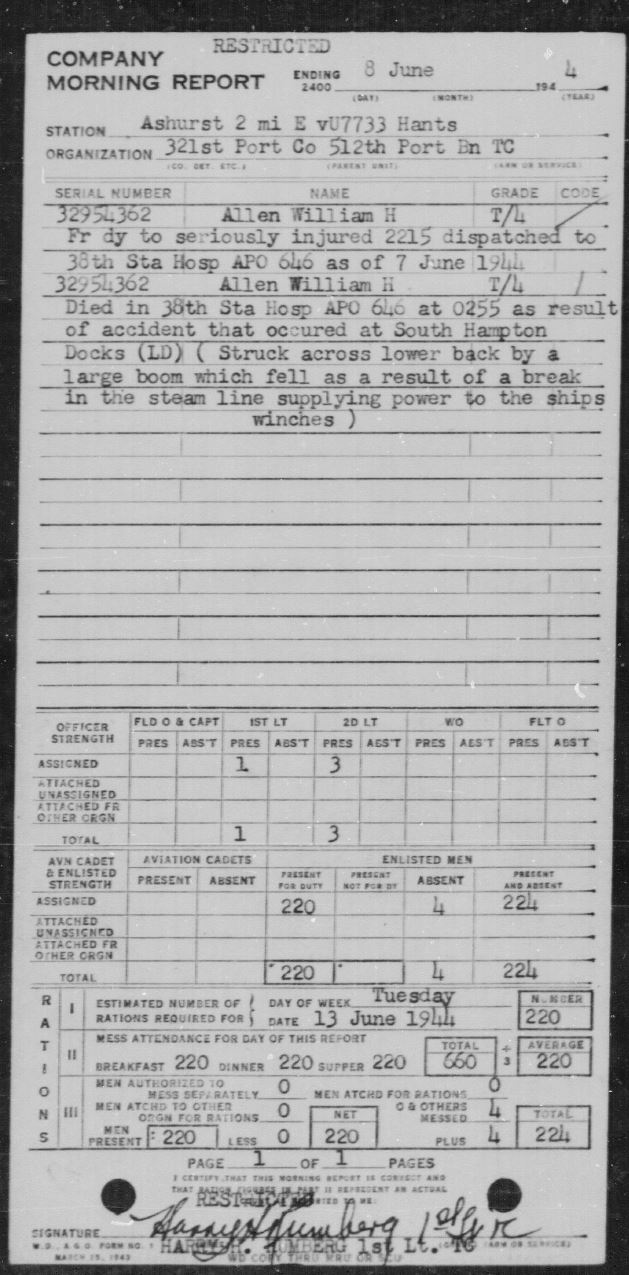 RESTRICTED
COMPANY
MORNING REPORT ENDING 2400 8 June 194 4
(DAY) (MONTH) (YEAR)
STATION Ashurst 2 mi E vU7733 Hants
ORGANIZATION 321st Port Co 512th Port Bn TC
(CO. DET. ETC.) (PARENT UNIT) (ARM OR SERVICE)
SERIAL NUMBER NAME GRADE CODE
32954362 Allen William H T/4
Fr dy to seriously injured 2215 dispatched to
38th Sta Hosp APO 646 as of 7 June 1944
32954362 Allen William H T/4
Died in 38th Sta Hosp APO 646 at 0255 as result
of accident that occured at South Hampton
Docks (LD) ( Struck across lower back by a
large boom which fell as a result of a break
in the steam line supplying power to the ships
winches )
OFFICER STRENGTH FLD O & CAPT 1ST LT 2D LT WO FLT O
PRES ABS'T PRES ABS'T PRES ABS'T PRES ABS'T PRES ABS'T
ASSIGNED 1 3
ATTACHED UNASSIGNED
ATTACHED FR OTHER ORGN
TOTAL 1 3
AVN CADET & ENLISTED STRENGTH AVIATION CADETS ENLISTED MEN
PRESENT ABSENT PRESENT FOR DUTY PRESENT NOT FOR DY ABSENT PRESENT AND ABSENT
ASSIGNED 220 4 224
ATTACHED UNASSIGNED
ATTACHED FR OTHER ORGN
TOTAL 220 4 224
RATIONS
I ESTIMATED NUMBER OF RATIONS REQUIRED FOR DAY OF WEEK Tuesday DATE 13 June 1944 NUMBER 220
II MESS ATTENDANCE FOR DAY OF THIS REPORT TOTAL AVERAGE
BREAKFAST 220 DINNER 220 SUPPER 220 660 ÷ 3 220
III MEN AUTHORIZED TO MESS SEPARATELY 0 MEN ATCHD FOR RATIONS 0
MEN ATCHD TO OTHER ORGN FOR RATIONS 0 NET O & OTHERS MESSED 4 TOTAL
MEN PRESENT 220 LESS 0 220 PLUS 4 224
PAGE 1 OF 1 PAGES
I CERTIFY THAT THIS MORNING REPORT IS CORRECT AND
THAT RATION FIGURES IN PART II REPRESENT AN ACTUAL
RESTRICTED
SIGNATURE Harry H Humberg 1st Lt TC
HARRY H. HUMBERG 1st Lt. TC
W.D., A.G.O. FORM NO. 1
MARCH 15, 1943
WD COPY THRU MRU OR SCU